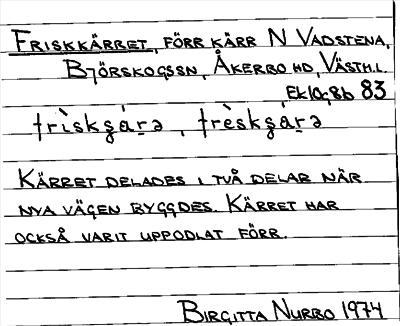 FRISKKÄRRET, FÖRR KÄRR N VADSTENA,
BJÖRSKOGSSN, ÅKERBO HD, VÄSTM.L.
Ek 10g8b 83
frìskʂáꞅə, frèskʂàꞅə
KÄRRET DELADES I TVÅ DELAR NÄR
NYA VÄGEN BYGGDES. KÄRRET HAR
OCKSÅ VARIT UPPODLAT FÖRR.
BIRGITTA NURBO 1974